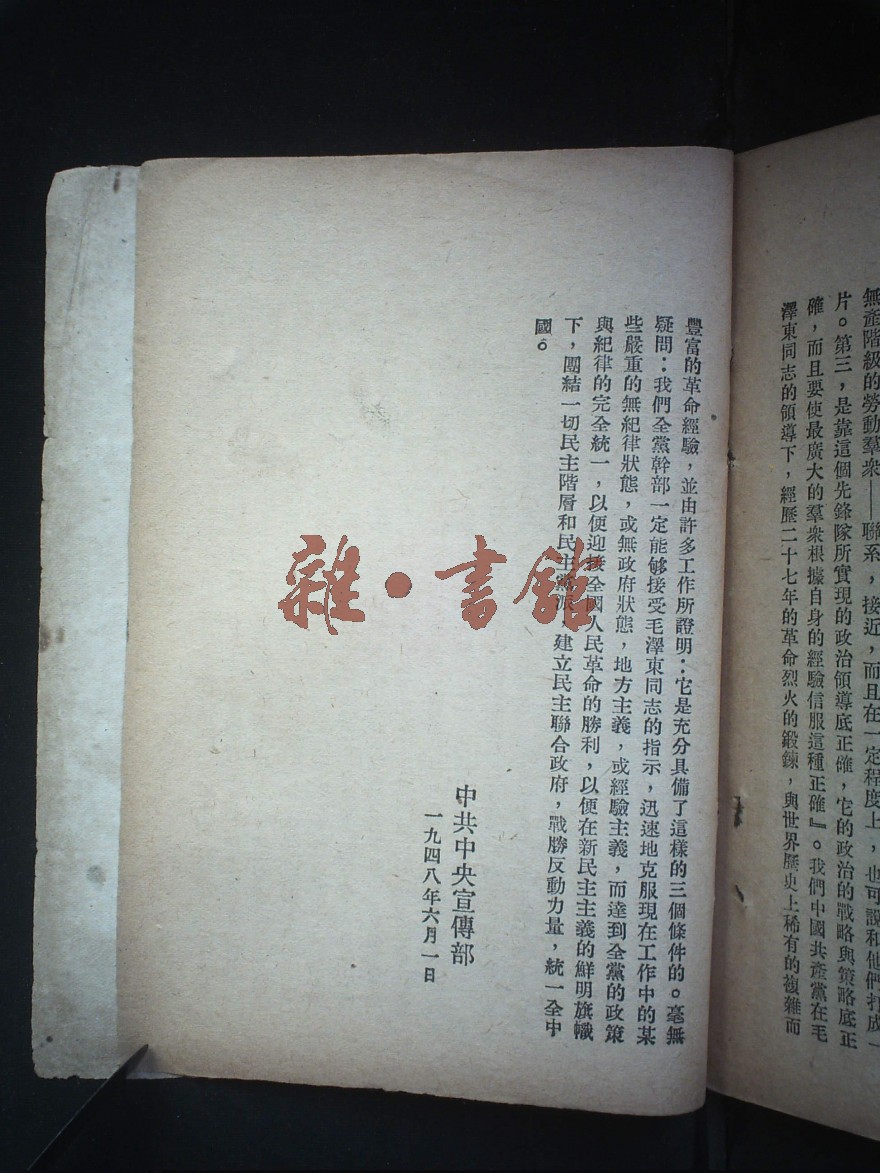 無產階級的勞動羣衆——聯系,接近,而且在一定程度上,也可說和他們打成一
片。第三,是靠這個先鋒隊所實現的政治領導底正確,它的政治的戰略與策略底正
確,而且要使最廣大的羣衆根據自身的經驗信服這種正確』。我們中國共產黨在毛
澤東同志的領導下,經歷二十七年的革命烈火的鍛鍊,與世界歷史上稀有的複雜而
豐富的革命經驗,並由許多工作所證明:它是充分具備了這樣的三個條件的。毫無
疑問:我們全黨幹部一定能够接受毛澤東同志的指示,迅速地克服現在工作中的某
些嚴重的無紀律狀態,或無政府狀態,地方主義,或經驗主義,而達到全黨的政策
與紀律的完全統一,以便迎接全國人民革命的勝利,以便在新民主主義的鮮明旗幟
下,團結一切民主階層和民主黨派,建立民主聯合政府,戰勝反動力量,統一全中
國。
中共中央宣傳部
一九四八年六月一日
雜·書館